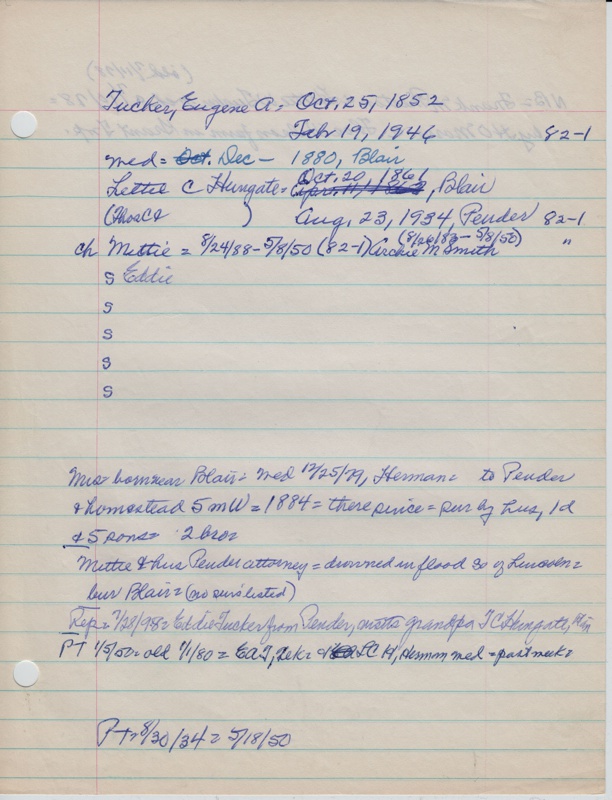 Tucker, Eugene A = Oct, 25, 1852
Feb 19, 1946 82-1
med = Dec - 1880, Blair
Oct. 20, 1861
Lettie C Hungate = Apr. 11, 1862, Blair
) Aug, 23, 1934 Pender 82-1
(8/26/83 - 5/8/50)
ch Mettie = 8/24/88 - 5/8/50 (82-1) Archie M Smith "
S Eddie
S
S
S
S
S
Mrs = born near Blair = med 12/25/79, Herman = to Pender
& homestead 5 mW = 1884 = there since = sur by hus, 1d
& 5 sons = 2 bros
Mettie & hus Pender attorney = drowned in flood So of Lincoln =
bur Blair = (no surs listed)
7/28/98 = Eddie Tucker from Pender, grandpa T C Hungate,
PT 1/5/50 = old 7/1/80 = EAT, Tek = & LCH, Herman med = past week =
PT = 8/30/34 = 5/18/50